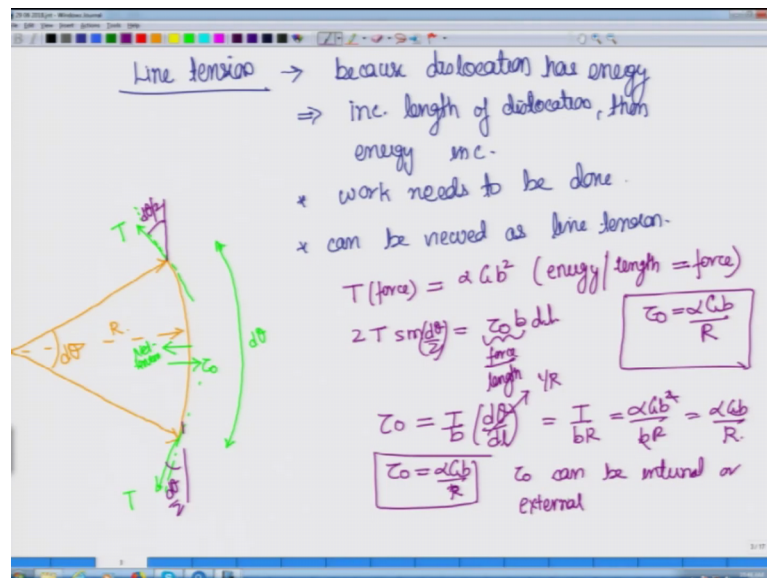 29-08-2018.jnt - Windows Journal
File Edit View Insert Actions Tools Help
Line tension → because dislocation has energy
⇒ inc. length of dislocation, then
energy inc.
* work needs to be done.
* can be viewed as line tension.
T (force) = αGb² (energy/length = force)
2T sin(dθ/2) = τ₀ b dl
force
length
τ₀ = αGb/R
τ₀ = T/b (dθ/dl) = T/bR = αGb²/bR = αGb/R.
1/R
τ₀ = αGb/R
τ₀ can be internal or
external
dθ/2
T
R
dθ
Net-
tension
τ₀
dθ
T
dθ/2